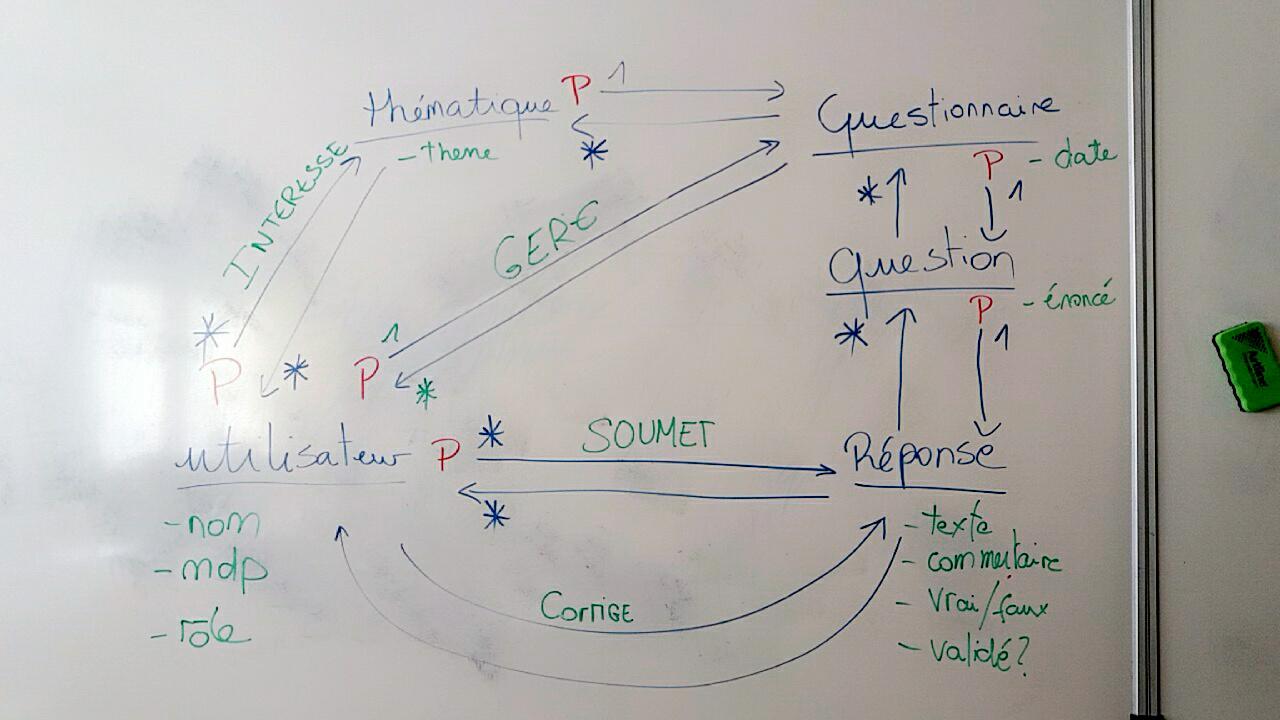 thématique P 1
- theme
*
Questionnaire
P - date
* 1
INTERESSE
GERE
Question
P - énoncé
* 1
* P *
P 1 *
utilisateur P * SOUMET Réponse
*
- nom
- mdp
- role
Corrige
- texte
- commentaire
- Vrai/faux
- validé?